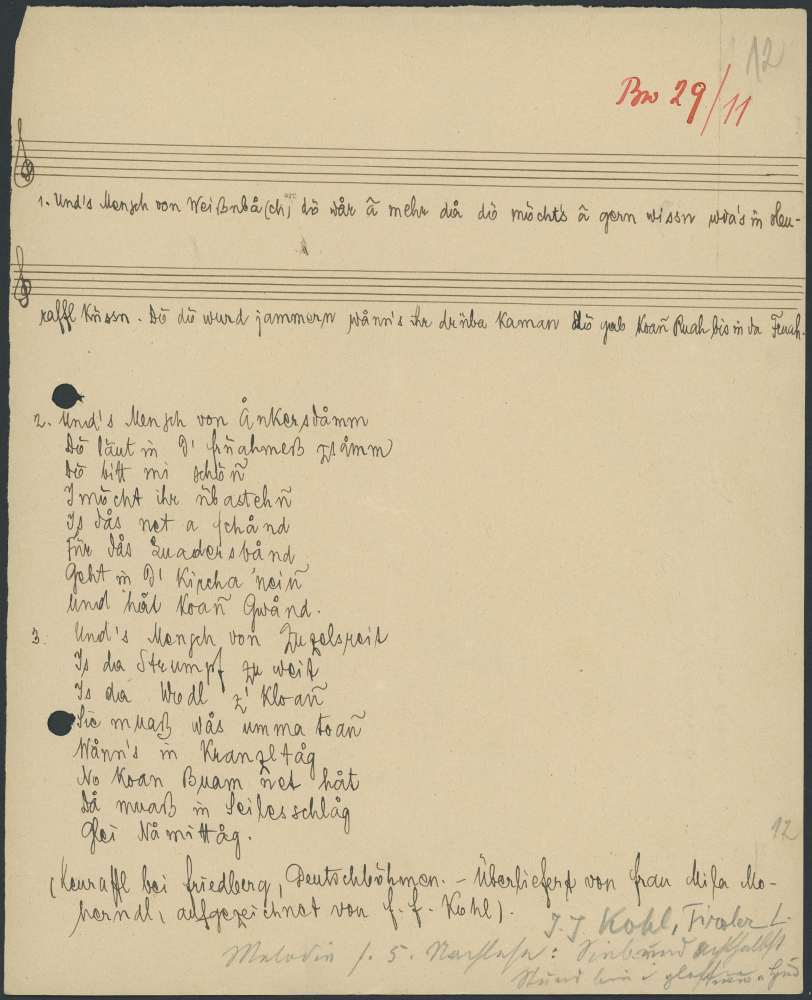 12
Bw 29/11
1. Und's Mensch von Weißnbå(ch, dö wår ã mehr då dö möcht's ã gern wissn wia's in Heu-
raffl Küssn. Dö dö wurd jammern wånn's ihr drüba kaman dö gab koañ Ruah bis in da Fruah.
2. Und's Mensch von Ånkersdåmm
Dö läut in d' Frühahmeß zsåmm
Dö bitt mi schöñ
I möcht ihr übastehñ
Is dås net a Schånd
Für dås Luadersbånd
Geht in d' Kircha 'neiñ
Und håt koañ Gwånd.
3. Und's Mensch von Zuzelsreit
Is da Strumpf zu weit
Is da Wedl z' kloañ
Sie muaß wås umma toañ
Wånn's in Kranzltåg
No koan Buam ñet håt
Då muaß in Seilesschlåg
Glei Nåmittåg.
(Heuraffl bei Friedberg, Deutschböhmen. - Überliefert von Frau Mila Mo-
herndl, aufgezeichnet von F. F. Kohl).
12
J. J Kohl, Tiroler L.
Melodie s. 5. Nachlese:
Stund bin i